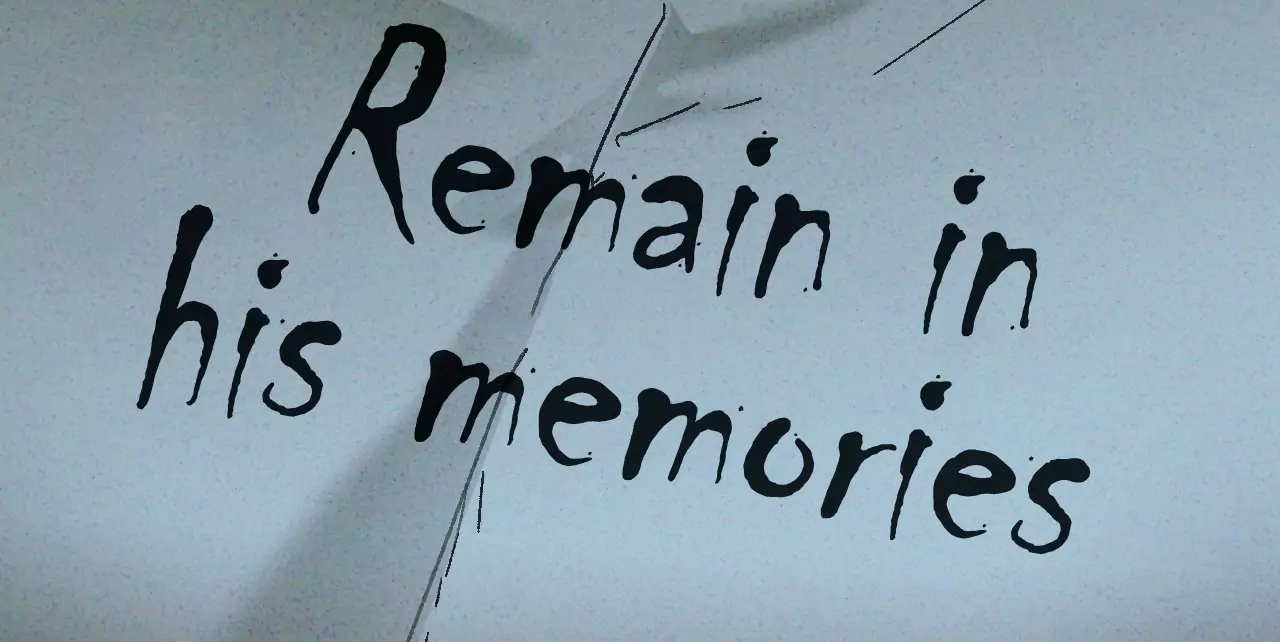 Remain in
his memories